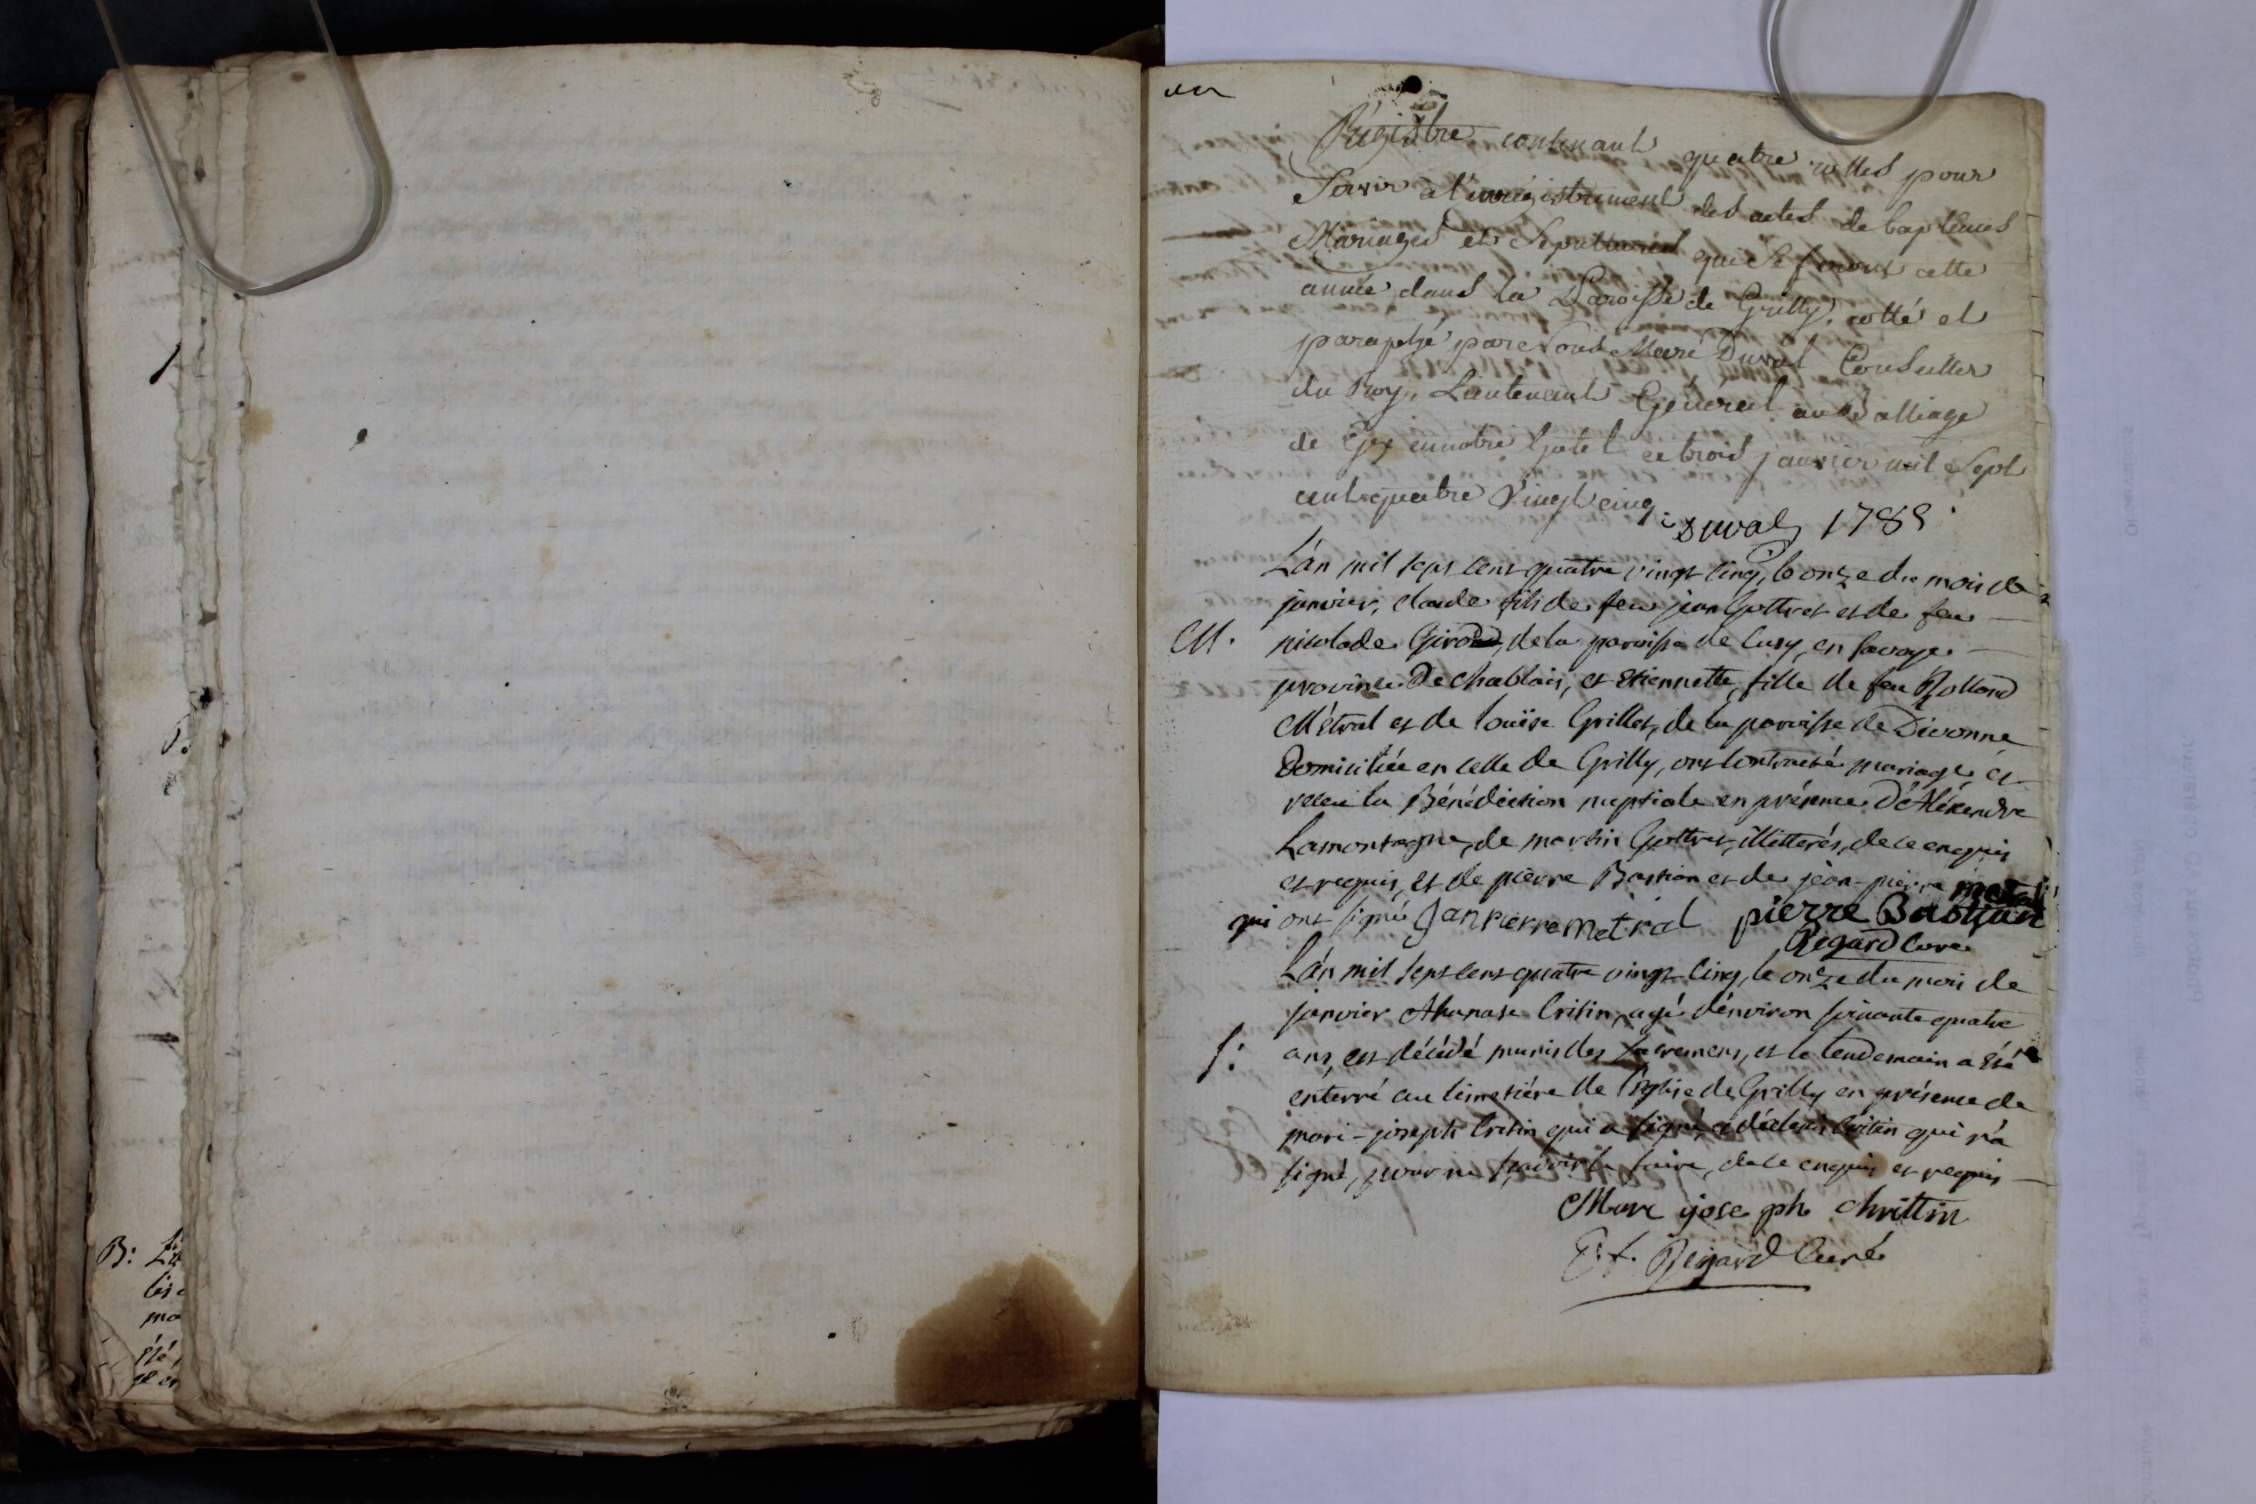 B: L'a
lis
ma
été
ge
un
Régistre contenant quatre rolles pour
Servir a l'enrégistrement des actes de baptêmes
Mariages et Sepultures qui se feront cette
année dans la Paroisse de Grilly, cotté et
paraphé par Nous Marc Duval Conseiller
du Roy, Lieutenant Général au Balliage
de Gex en notre hotel ce trois janvier mil Sept
cent quatre Vingt cinq.
Duval 1785
L'an mil sept cent quatre vingt cinq, le onze du mois de
janvier, claude fils de feu jean Gottret et de feu
M. nicolade Girod, de la paroisse de Cusy, en savoye
province De chablais, et Etiennette, fille de feu Rolland
Métral et de louïse Grillet, de la paroisse de Divonne
Domiciliée en celle de Grilly, ont contracté mariage et
reçeu la Bénédiction nuptiale en présence D'Aléxendre
Lamontagne, de martin Gottret, illitterés, de ce enquis
et requis, et de pierre Bastian et de jéan-pierre metral
qui ont signé Janpierre metral pierre Bastian
Regard Curé
L'an mil sept cent quatre vingt cinq, le onze du mois de
janvier Athanase Critin, agé d'environ soixante quatre
S: ans, est décédé munis des Sacremens, et le lendemain a été
enterré au cimetière de l'église de Grilly en présence de
marc-joseph Critin qui a signé, et Critin qui n'a
signé, pour ne sçavoir le faire, de ce enquis et requis
Marc joseph chrittin
Regard Curé